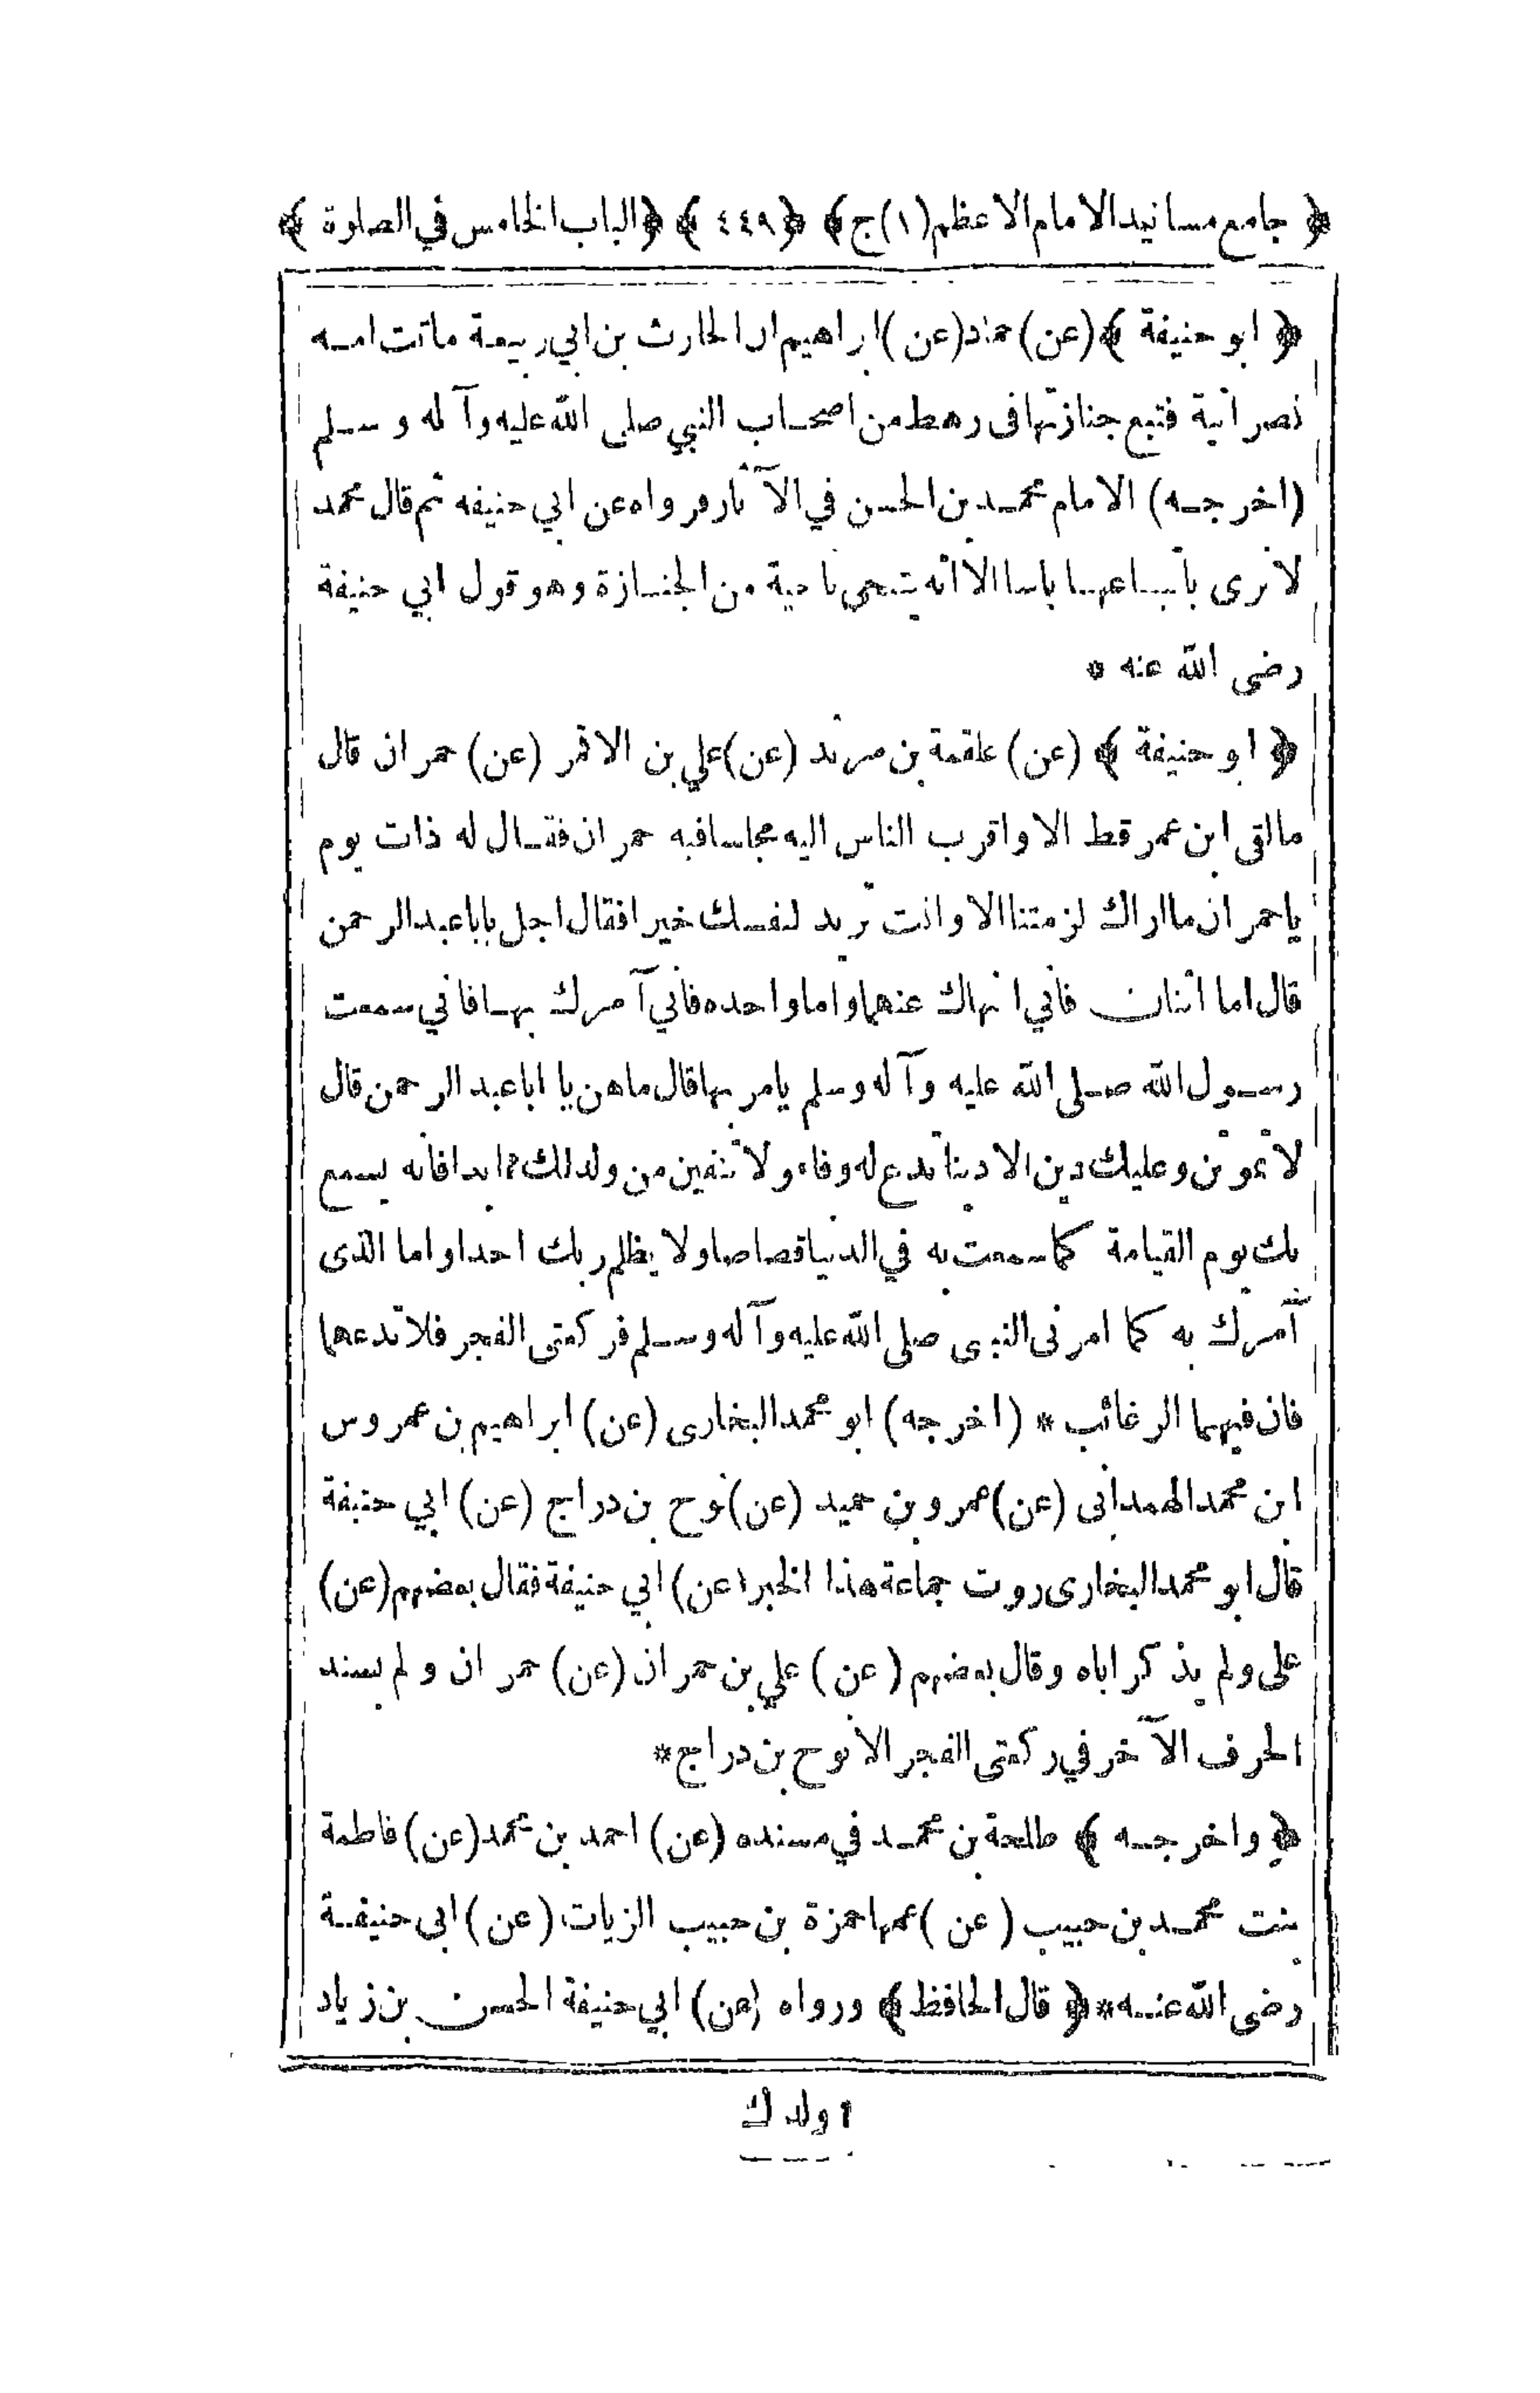 ﴿ جامع مسانيد الامام الاعظم (١) ج ﴾ ﴿ ٤٤٩ ﴾ ﴿ الباب الخامس في الصلوة ﴾
﴿ ابو حنيفة ﴾ (عن) حماد (عن) ابراهيم ان الحارث بن ابي ربيعة ماتت امه
نصرانية فتبع جنازتها فى رهط من اصحاب النبي صلى الله عليه وآله وسلم
(اخرجه) الامام محمد بن الحسن في الآثار فرواه عن ابي حنيفه ثم قال محمد
لا نرى باتباعها باسا الا انه يتنحى ناحية من الجنازة وهو قول ابي حنيفة
رضى الله عنه *
﴿ ابو حنيفة ﴾ (عن) علقمة بن مرثد (عن) علي بن الاقمر (عن) حمران قال
مالقى ابن عمر قط الا واقرب الناس اليه مجلسا فيه حمران فقال له ذات يوم
ياحمران ما اراك لزمتنا الا وانت تريد لنفسك خيرا فقال اجل يابا عبد الرحمن
قال اما اثنان فاني انهاك عنهما واما واحده فاني آمرك بها فاني سمعت
رسول الله صلى الله عليه وآله وسلم يامر بها قال ماهن يا ابا عبد الرحمن قال
لا تموتن وعليك دين الا دينا تدع له وفاء ولا تنفين من ولدلك ١ ابدا فانه يسمع
بك يوم القيامة كما سمعت به في الدنيا قصاصا ولا يظلم ربك احدا واما الذى
آمرك به كما امرنى النبى صلى الله عليه وآله وسلم فركعتى الفجر فلا تدعهما
فان فيهما الرغائب * (اخرجه) ابو محمد البخارى (عن) ابراهيم بن عمروس
ابن محمد الهمدانى (عن) عمرو بن حميد (عن) نوح بن دراج (عن) ابي حنيفة
قال ابو محمد البخارى روت جماعة هذا الخبر (عن) ابي حنيفة فقال بعضهم (عن)
على ولم يذكر اباه وقال بعضهم (عن) علي بن حمران (عن) حمران ولم يسند
الحرف الآخر في ركعتى الفجر الا نوح بن دراج *
﴿ واخرجه ﴾ طلحة بن محمد في مسنده (عن) احمد بن محمد (عن) فاطمة
بنت محمد بن حبيب (عن) عمها حمزة بن حبيب الزيات (عن) ابى حنيفة
رضى الله عنه * ﴿ قال الحافظ ﴾ ورواه (عن) ابي حنيفة الحسن بن زياد
١ ولدك